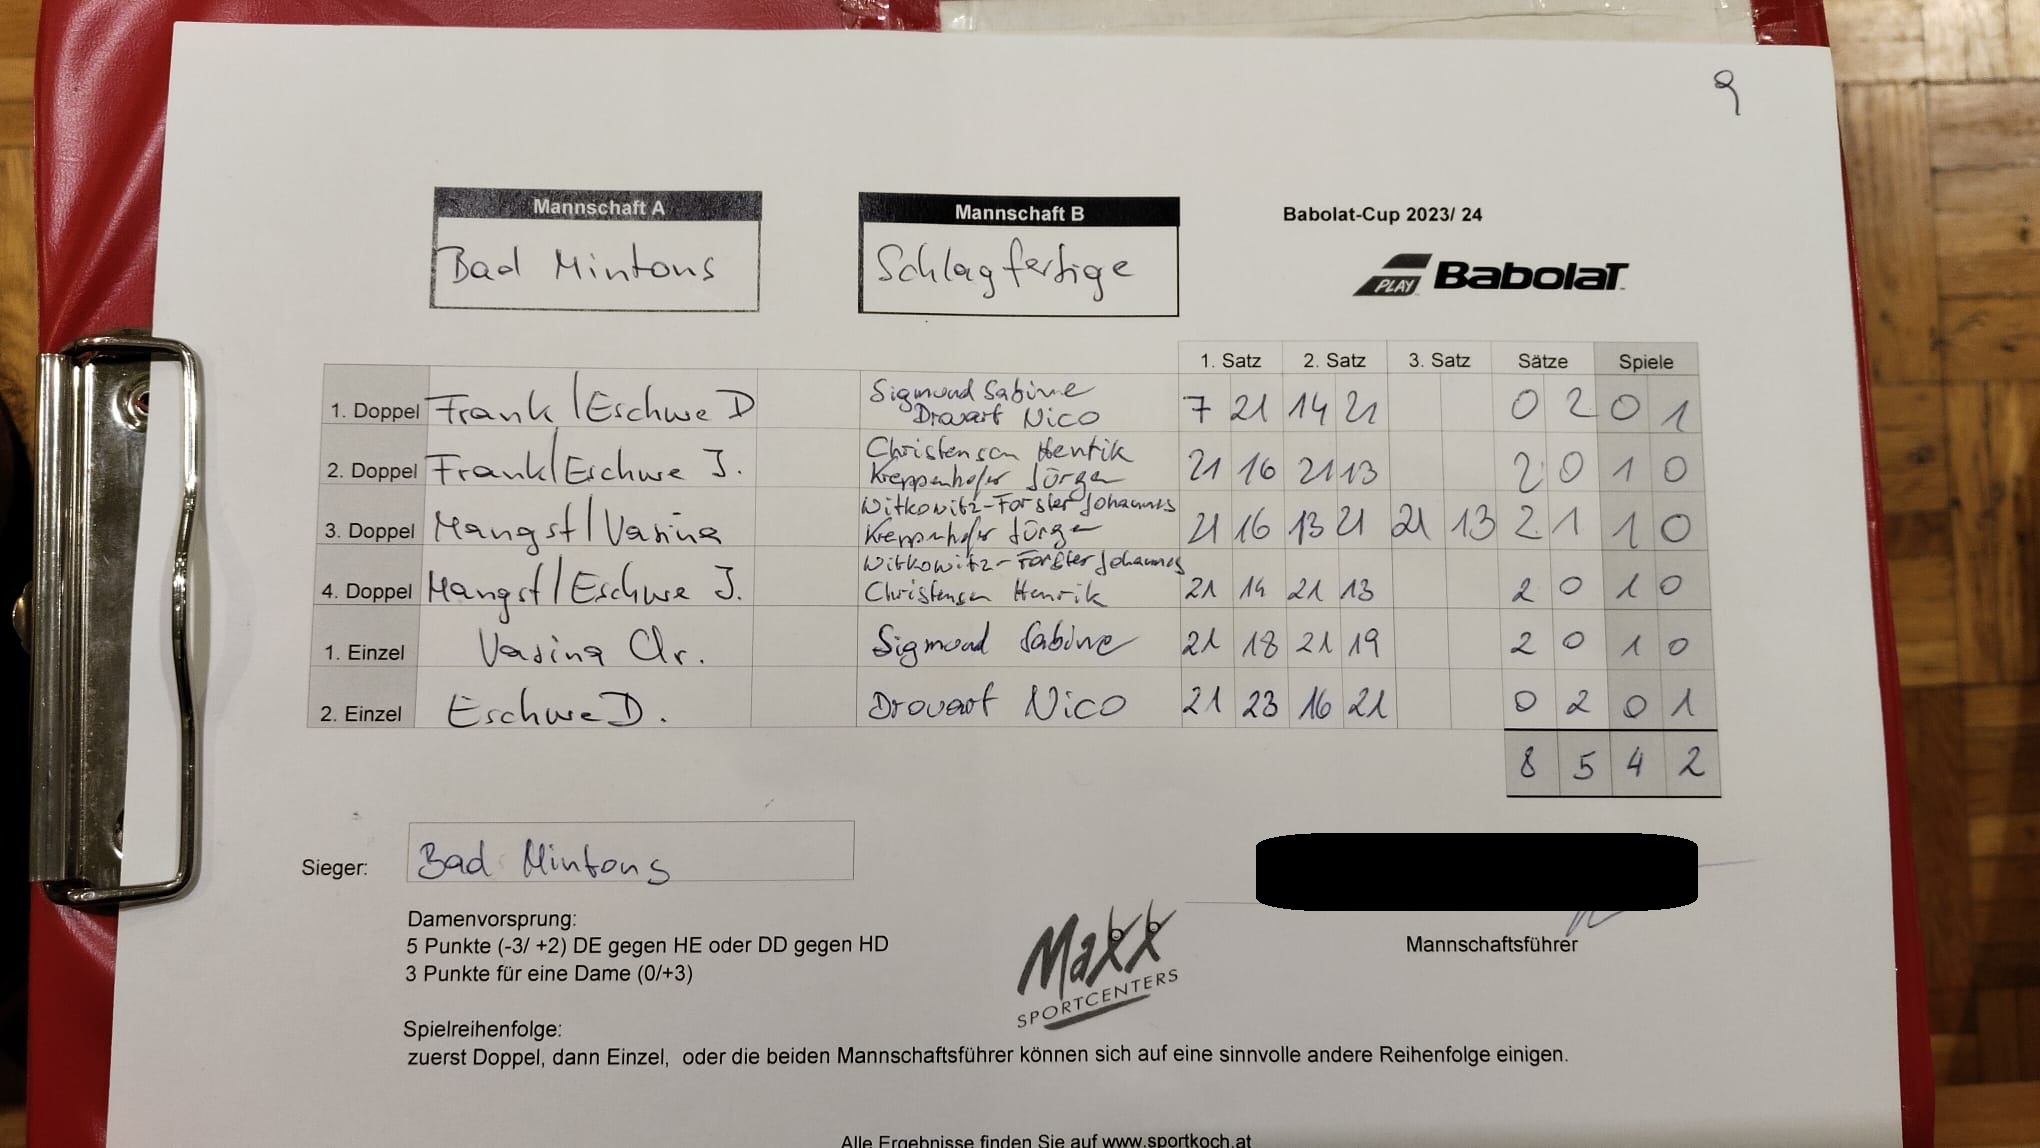 9
Mannschaft A
Bad Mintons
Mannschaft B
Schlagfertige
Babolat-Cup 2023/ 24
PLAY BabolaT
1. Satz 2. Satz 3. Satz Sätze Spiele
1. Doppel Frank / Eschwe D Sigmund Sabine 7 21 14 21 0 2 0 1
Drouart Nico
2. Doppel Frank / Eschwe J. Christensen Henrik 21 16 21 13 2 0 1 0
Kreppenhofer Jürgen
3. Doppel Mangst / Vasina Witkowitz-Forster Johannes 21 16 13 21 21 13 2 1 1 0
Kreppenhofer Jürgen
4. Doppel Mangst / Eschwe J. Witkowitz-Forster Johannes 21 14 21 13 2 0 1 0
Christensen Henrik
1. Einzel Vasina Chr. Sigmund Sabine 21 18 21 19 2 0 1 0
2. Einzel Eschwe D. Drouart Nico 21 23 16 21 0 2 0 1
8 5 4 2
Sieger: Bad Mintons
Damenvorsprung:
5 Punkte (-3/ +2) DE gegen HE oder DD gegen HD
3 Punkte für eine Dame (0/+3)
Maxx
SPORTCENTERS
Mannschaftsführer
Spielreihenfolge:
zuerst Doppel, dann Einzel, oder die beiden Mannschaftsführer können sich auf eine sinnvolle andere Reihenfolge einigen.
Alle Ergebnisse finden Sie auf www.sportkoch.at